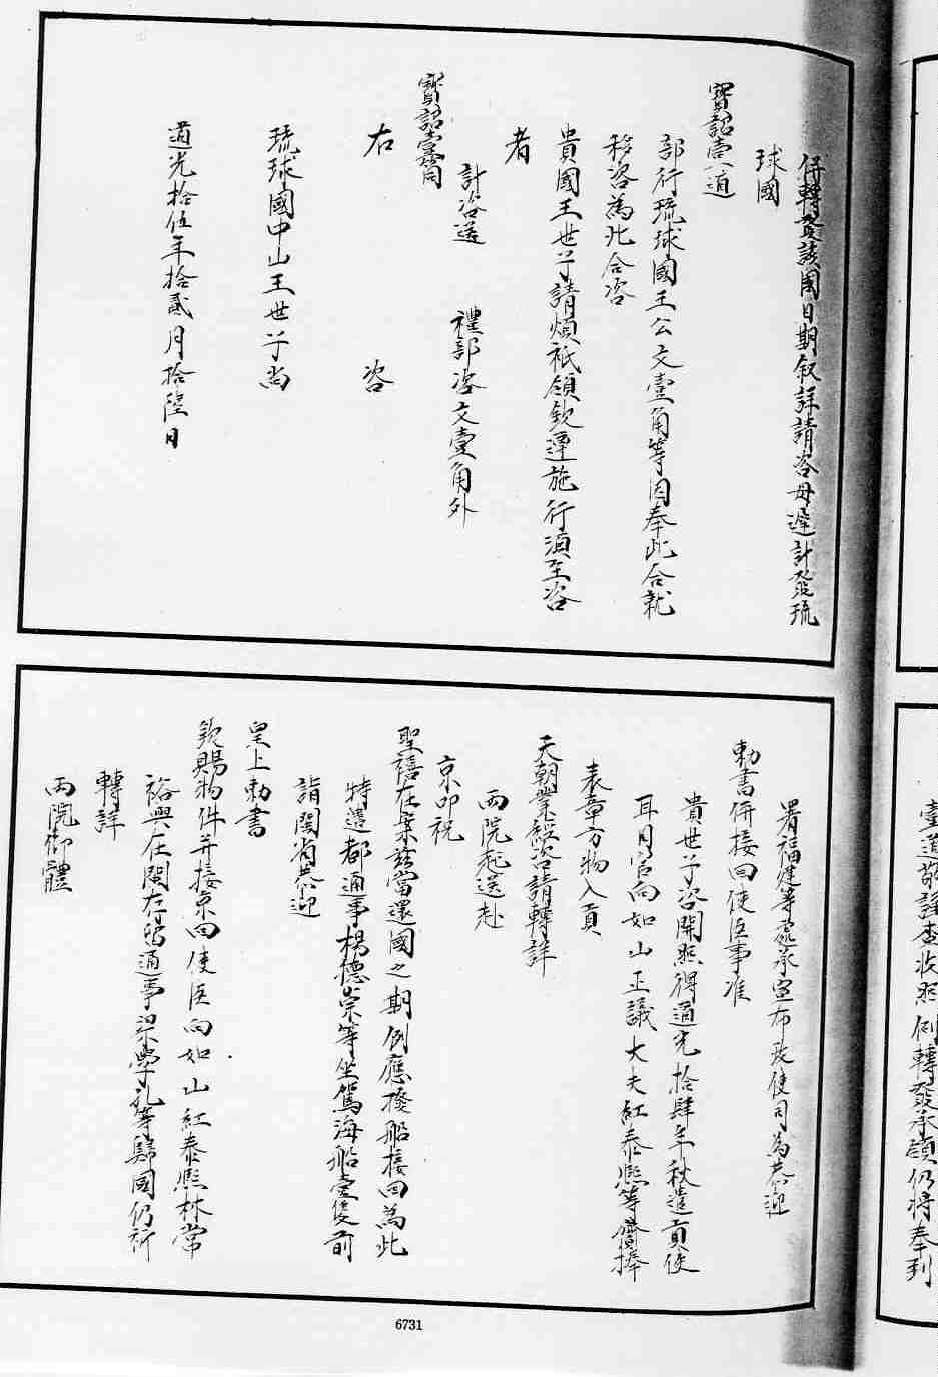 併轉發該國日期叙詳請咨毋遲計發琉
球國
寶詔壹道
部行琉球國王公文壹角等因奉此合就
移咨為此合咨
貴國王世子請煩祇領欽遵施行須至咨
者
計咨送　禮部咨文壹角外
寶詔壹筒
右　咨
琉球國中山王世子尚
道光拾伍年拾貳月拾陸日
署福建等處承宣布政使司為恭迎
勅書併接回使臣事准
貴世子咨開照得道光拾肆年秋遣貢使
耳月官向如山正議大夫紅泰熙等齎捧
表章方物入貢
天朝業經咨請轉詳
両院起送赴
京叩祝
聖禧在案茲當還國之期例應撥船接回為此
特遣都通事楊德崇等坐駕海船壹隻前
詣閩省恭迎
皇上勅書
欽賜物件并接京回使臣向如山紅泰熙林常
裕與在閩存留通事梁學孔等歸國仍祈
轉詳
両院御體
臺道敬謹查收照例轉發承領仍將奉到
6731